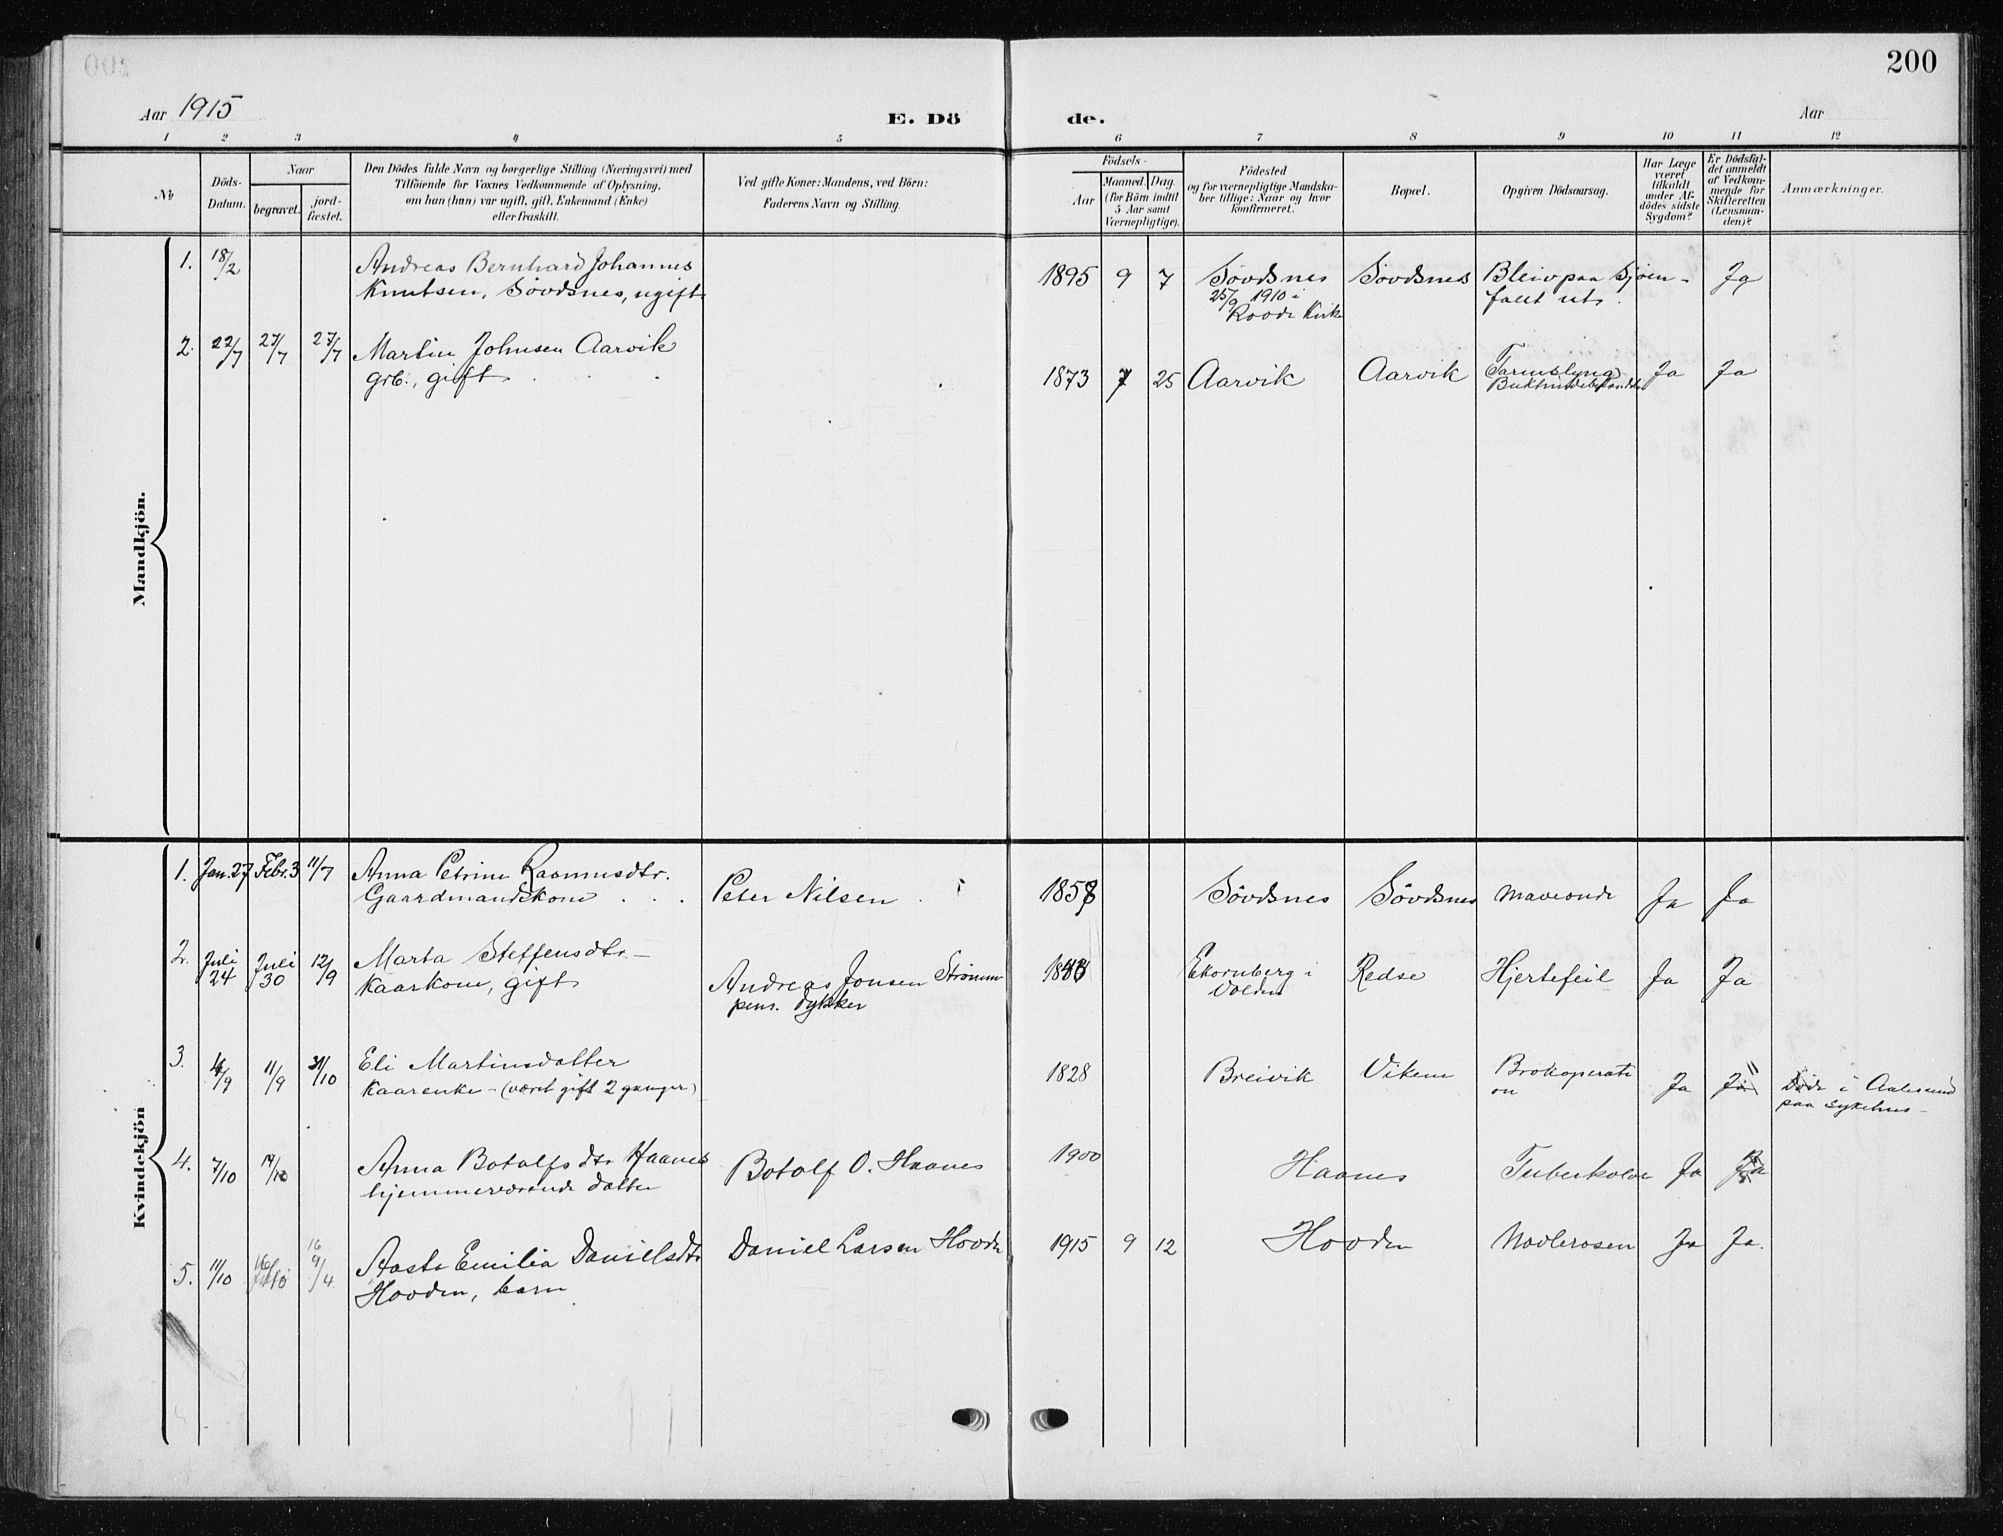 200
Aar 1915
E. Döde.
Aar
1 2 3 4 5 6 7 8 9 10 11 12
No
Döds-Datum.
Naar
begravet.
jord-fæstet.
Den Dödes fulde Navn og borgerlige Stilling (Næringsvei) med
Tilföiende for Voxnes Vedkommende af Oplysning,
om han (hun) var ugift, gift, Enkemand (Enke)
eller fraskilt.
Ved gifte Koner: Mandens, ved Börn:
Faderens Navn og Stilling.
Födsels-
Aar
Maaned. Dag.
(for Börn indtil
5 Aar samt
Værnepligtige).
Födested
og for værnepligtige Mandska-
ber tillige: Naar og hvor
konfirmeret.
Bopæl.
Opgiven Dödsaarsag.
Har Læge
været
tilkaldt
under Af-
dödes sidste
Sygdom?
Er Dödsfal-
det anmeldt
af Vedkom-
mende for
Skifteretten
(Lensman-
den)?
Anmærkninger.
Mandkjön.
1. 18/2 Andreas Bernhard Johannes 1895 9 7 Sövdsnes Sövdsnes Bleiv paa Sjøen - Ja
Knutsen, Sövdsnes, ugift 25/9 1910 i falt ut.
Rovde Kirke
2. 22/7 27/7 27/7 Martin Johnsen Aarvik
grb., gift 1873 7 25 Aarvik Aarvik Tarmslyng Ja Ja
Kvindekjön
1. Jan. 27 Febr. 3 11/7 Anna Petrine Rasmusdtr.
Gaardmandskone Peter Nilsen 1858 Sövdsnes Sövdsnes Maveonde Ja Ja
2. Juli 24 Juli 30 12/9 Marta Steffensdtr. -
Kaarkone, gift Andreas Jonsen Strømm Ekornberg i Redse Hjertefeil Ja Ja
pens. Dykker Volden
3. 4/9 11/9 31/10 Eli Martinsdatter
Kaarenke - (været gift 2 ganger) 1828 Breivik Viken Brokoperati Ja Ja Døde i Aalesund
on paa sykehus -
4. 7/10 14/10 Anna Botolfsdtr Haanes Botolf O. Haanes 1900 Haanes Tuberkolose Ja Ja
hjemmeværende datter
5. 11/10 16/10 16/4 Aasta Emilia Danielsdtr Daniel Larsen Hovden 1915 9 12 Hovden Navlerosen Ja Ja.
Hovden, barn